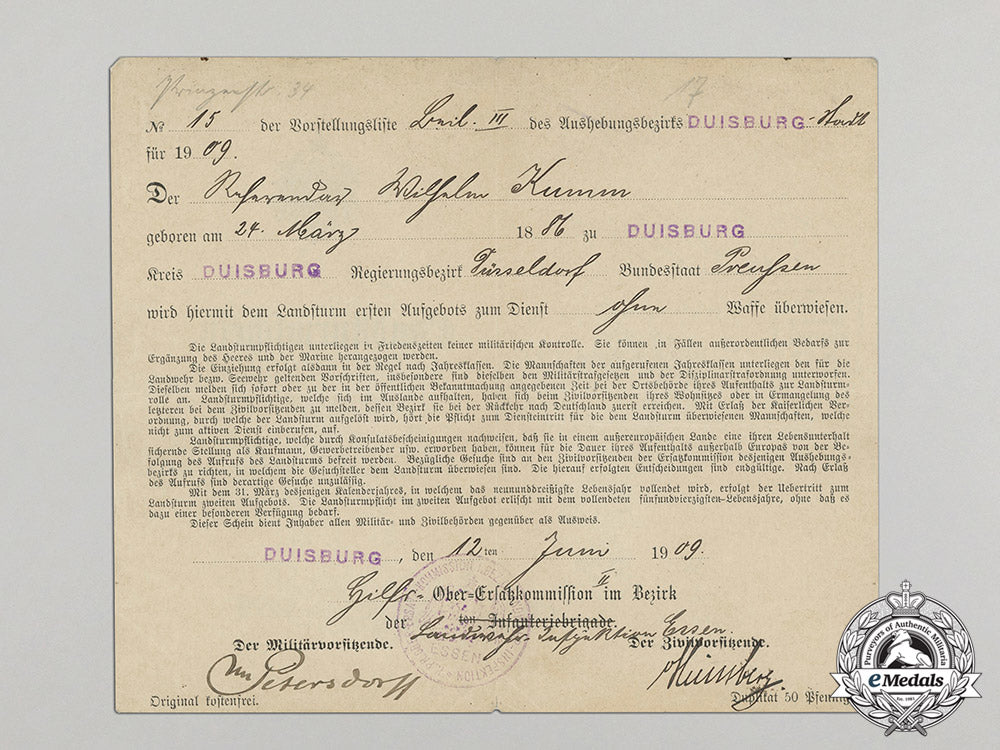 Prinzenstr. 34 17
№ 15 der Vorstellungsliste Beil. III des Aushebungsbezirks DUISBURG-Stadt
für 1909.
Der Referendar Wilhelm Kumm
geboren am 24. März 1886 zu DUISBURG
Kreis DUISBURG Regierungsbezirk Düsseldorf Bundesstaat Preußen
wird hiermit dem Landsturm ersten Aufgebots zum Dienst ohne Waffe überwiesen.
Die Landsturmpflichtigen unterliegen in Friedenszeiten keiner militärischen Kontrolle. Sie können in Fällen außerordentlichen Bedarfs zur
Ergänzung des Heeres und der Marine herangezogen werden.
Die Einziehung erfolgt alsdann in der Regel nach Jahresklassen. Die Mannschaften der aufgerufenen Jahresklassen unterliegen den für die
Landwehr bezw. Seewehr geltenden Vorschriften, insbesondere sind dieselben den Militärstrafgesetzen und der Disziplinarstrafordnung unterworfen.
Dieselben melden sich sofort oder zu der in der öffentlichen Bekanntmachung angegebenen Zeit bei der Ortsbehörde ihres Aufenthalts zur Landsturm-
rolle an. Landsturmpflichtige, welche sich im Auslande aufhalten, haben sich beim Zivilvorsitzenden ihres Wohnsitzes oder in Ermangelung des
letzteren bei dem Zivilvorsitzenden zu melden, dessen Bezirk sie bei der Rückkehr nach Deutschland zuerst erreichen. Mit Erlaß der Kaiserlichen Ver-
ordnung, durch welche der Landsturm aufgelöst wird, hört die Pflicht zum Diensteintritt für die dem Landsturm überwiesenen Mannschaften, welche
nicht zum aktiven Dienst einberufen, auf.
Landsturmpflichtige, welche durch Konsulatsbescheinigungen nachweisen, daß sie in einem außereuropäischen Lande eine ihren Lebensunterhalt
sichernde Stellung als Kaufmann, Gewerbetreibender usw. erworben haben, können für die Dauer ihres Aufenthalts außerhalb Europas von der Be-
folgung des Aufrufs des Landsturms befreit werden. Bezügliche Gesuche sind an den Zivilvorsitzenden der Ersatzkommission desjenigen Aushebungs-
bezirks zu richten, in welchem die Gesuchsteller dem Landsturm überwiesen sind. Die hierauf erfolgten Entscheidungen sind endgültige. Nach Erlaß
des Aufrufs sind derartige Gesuche unzulässig.
Mit dem 31. März desjenigen Kalenderjahres, in welchem das neununddreißigste Lebensjahr vollendet wird, erfolgt der Uebertritt zum
Landsturm zweiten Aufgebots. Die Landsturmpflicht im zweiten Aufgebot erlischt mit dem vollendeten fünfundvierzigsten Lebensjahre, ohne daß es
dazu einer besonderen Verfügung bedarf.
Dieser Schein dient Inhaber allen Militär- und Zivilbehörden gegenüber als Ausweis.
DUISBURG, den 12ten Juni 1909.
Hilfs-Ober-Ersatzkommission II im Bezirk
der ten Infanteriebrigade.
Landwehr-Inspektion Essen.
Der Militärvorsitzende. Der Zivilvorsitzende.
ESSEN
Petersdorff
Original kostenfrei. Duplikat 50 Pfennig
Purveyors of Authentic Militaria
eMedals
Est. 1985